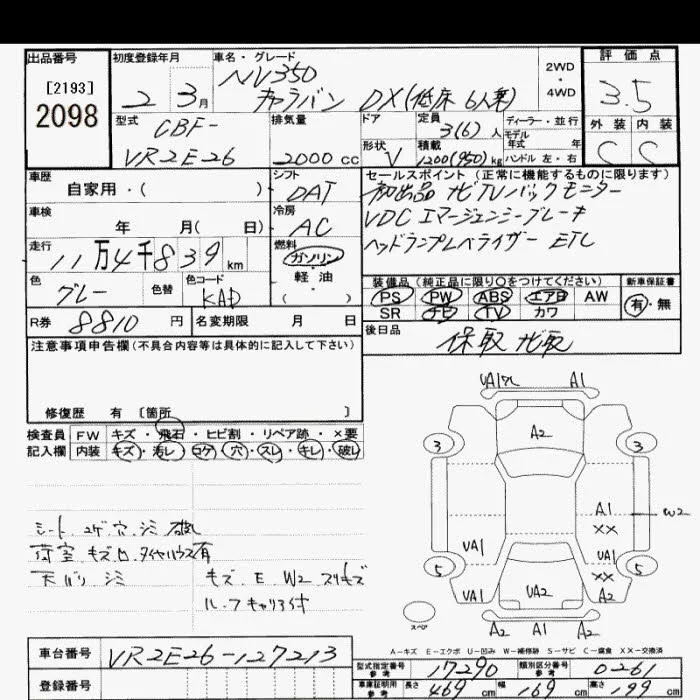 出品番号 初度登録年月 車名・グレード 2WD・4WD 評価点
[2193] 2098
2 3月 NV350 キャラバン DX(低床 6人乗) 3.5
型式 CBF-VR2E26 排気量 2000 cc ドア 形状 V 定員 3(6)人 積載 1200(950)kg ディーラー・並行 モデル年式 年 ハンドル 左・右 外装 C 内装 C
車歴 自家用・( ) シフト DAT セールスポイント(正常に機能するものに限ります)
初出品 ナビTVバックモニター
車検 年 月( 日) 冷房 AC VDC エマージェンシーブレーキ
走行 11万4千839km 燃料 ガソリン・軽・油( ) ヘッドランプレベライザー ETC
色 グレー 色替 色コード KAD
装備品(純正品に限り〇をつけてください) 新車保証書
PS PW ABS エアB AW 有・無
SR ナビ TV カワ
R券 8810円 名変期限 月 日 後日品 保取 ナビ取
注意事項申告欄(不具合内容等は具体的に記入して下さい)
修復歴 有 [箇所 ]
検査員 FW キズ・飛石・ヒビ割・リペア跡・×要
記入欄 内装 キズ・汚レ・コゲ・穴・スレ・キレ・破レ
シート コゲ 穴 シミ 破レ
荷室 キズ 凹 タイヤハウス有
天バリ シミ キズ E W2 スリキズ
ルーフキャリア付
A1
A2
3 3
A1
XX W2
UA1 UA1
5 XX 5
UA1 UA2 A2
スペア A2 A1 A2
A-キズ E-エクボ U-凹み W-補修跡 S-サビ C-腐食 XX-交換済
車台番号 VR2E26-127213
登録番号
型式指定番号 参考 17290 類別区分番号 参考 0261
車庫証明用 参考 長さ 469cm 幅 169cm 高さ 199cm